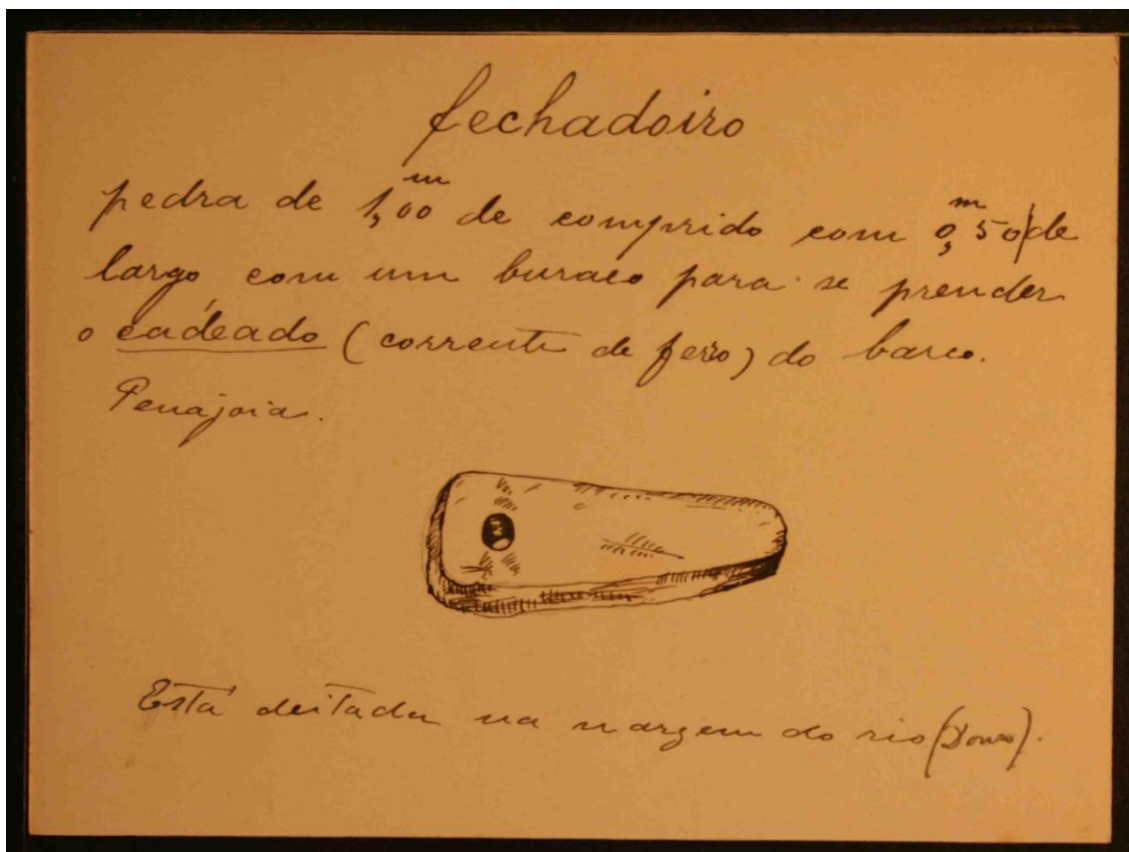 fechadoiro
pedra de 1,00m de comprido com 0,50m de
largo com um buraco para se prender
o cadeado (corrente de ferro) do barco.
Penajoia.
Está deitada na margem do rio (Douro).